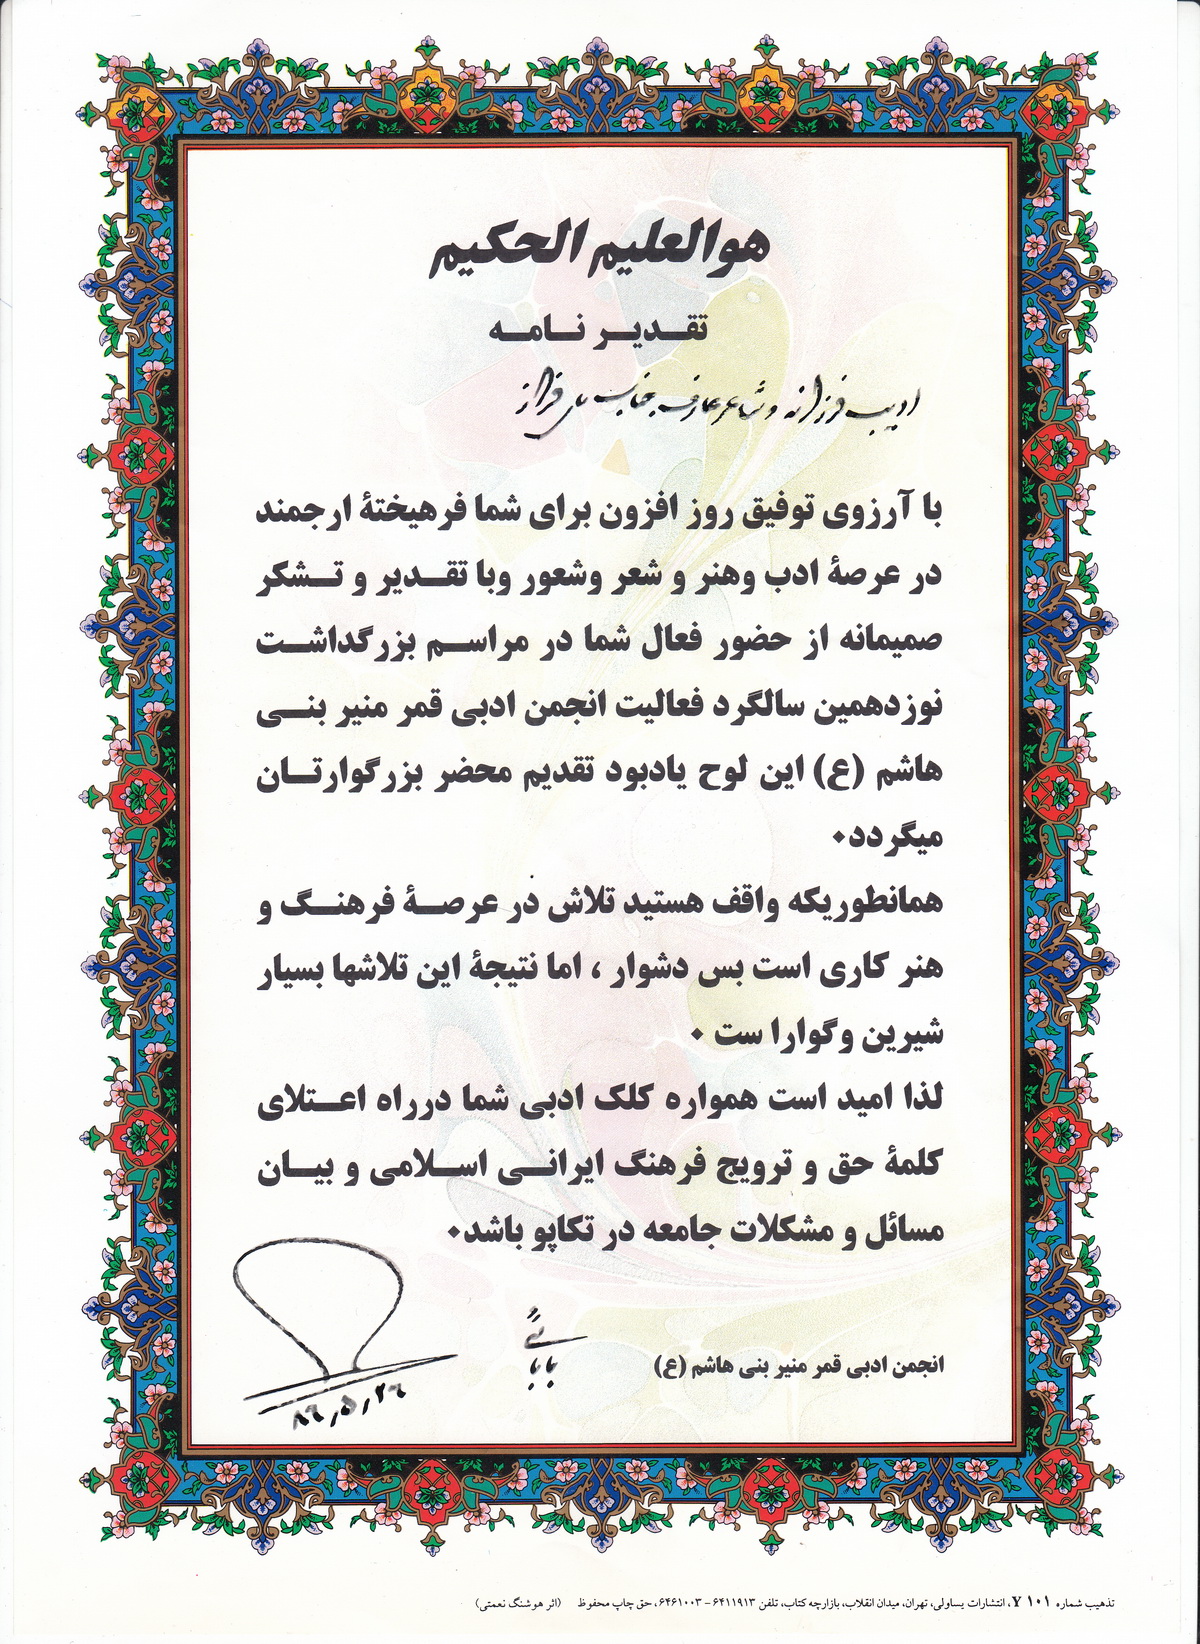 هوالعلیم الحکیم
تقدیر نامه
ادیب فرزانه و شاعر عارف جناب فراز
با آرزوی توفیق روز افزون برای شما فرهیختهٔ ارجمند
در عرصهٔ ادب وهنر و شعر وشعور وبا تقدیر و تشکر
صمیمانه از حضور فعال شما در مراسم بزرگداشت
نوزدهمین سالگرد فعالیت انجمن ادبی قمر منیر بنی
هاشم (ع) این لوح یادبود تقدیم محضر بزرگوارتان
میگردد۰
همانطوریکه واقف هستید تلاش در عرصهٔ فرهنگ و
هنر کاری است بس دشوار ، اما نتیجهٔ این تلاشها بسیار
شیرین وگوارا ست ۰
لذا امید است همواره کلک ادبی شما درراه اعتلای
کلمهٔ حق و ترویج فرهنگ ایرانی اسلامی و بیان
مسائل و مشکلات جامعه در تکاپو باشد۰
انجمن ادبی قمر منیر بنی هاشم (ع)
۸۶٫۵٫۲۶
تذهیب شماره ۱۰۱ Y، انتشارات یساولی، تهران، میدان انقلاب، بازارچه کتاب، تلفن ۶۴۱۱۹۱۳ - ۶۴۶۱۰۰۳، حق چاپ محفوظ (اثر هوشنگ نعمتی)